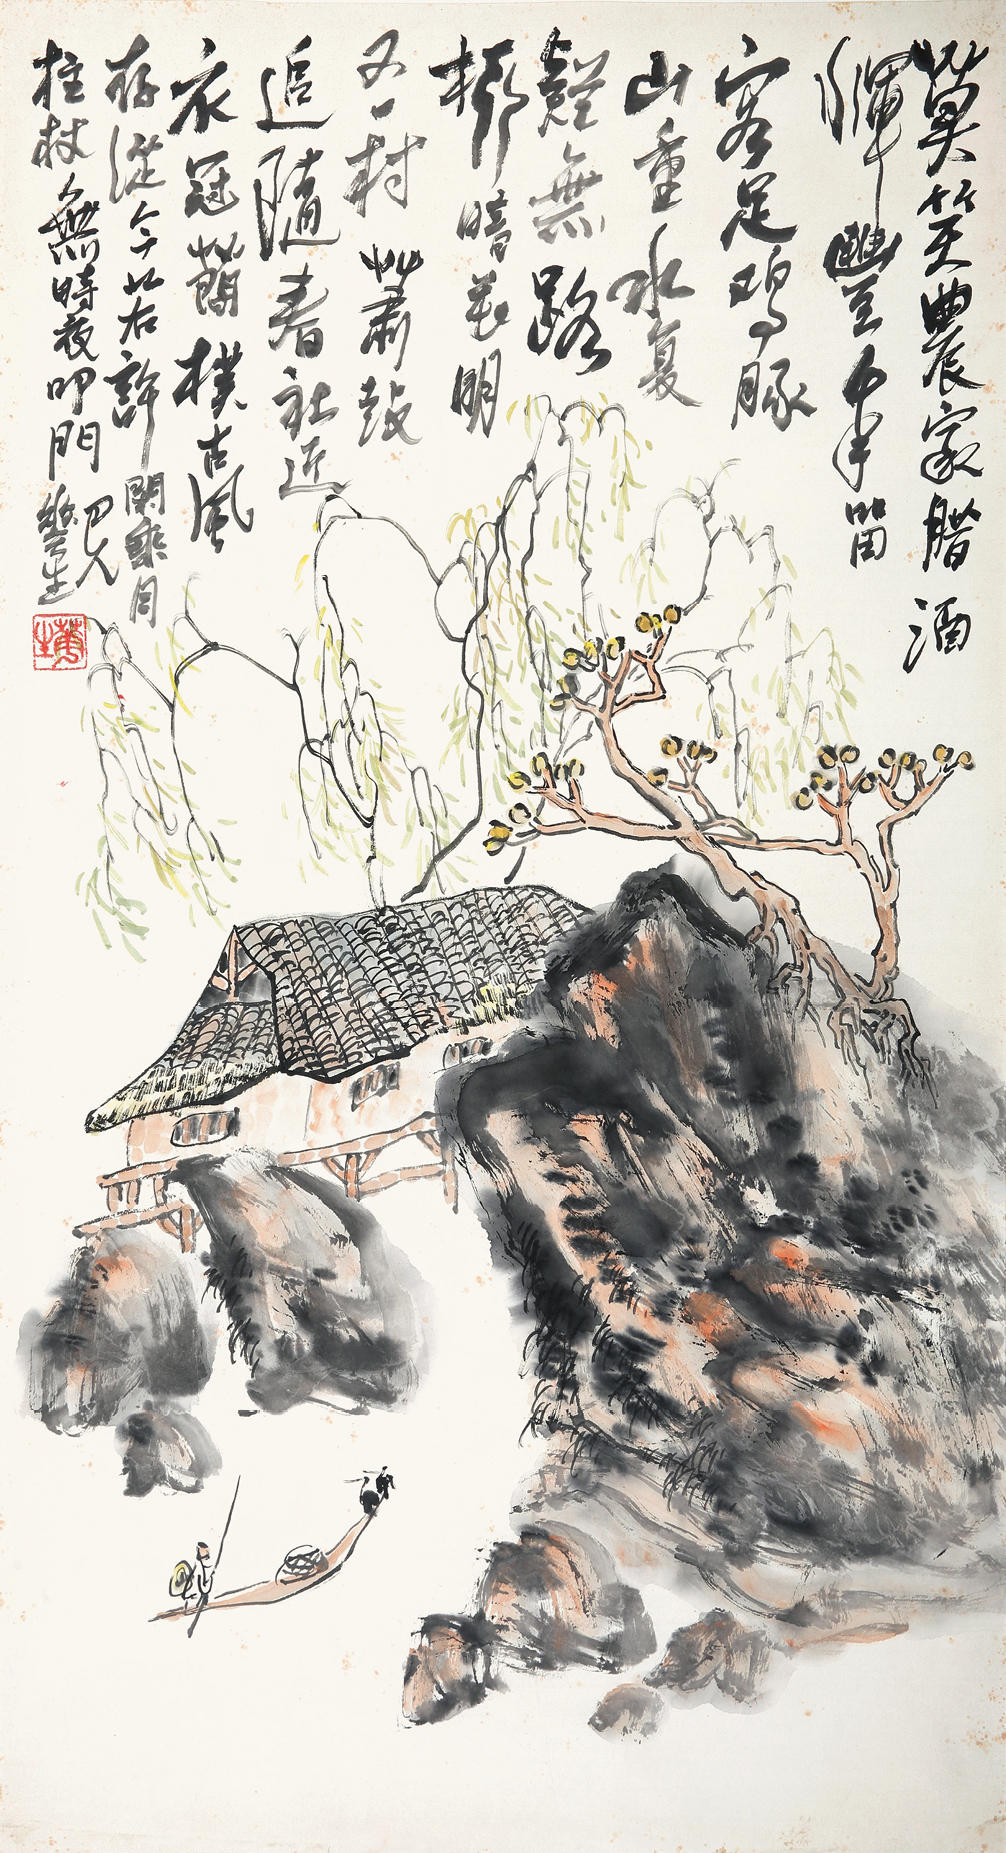 莫笑農家腊酒
渾豐年留
客足鸡豚
山重水复
疑無路
柳暗花明
又一村蕭鼓
追随春社近
衣冠簡樸古風
存從今若許閑乘月
柱杖無時夜叩門巴人
生